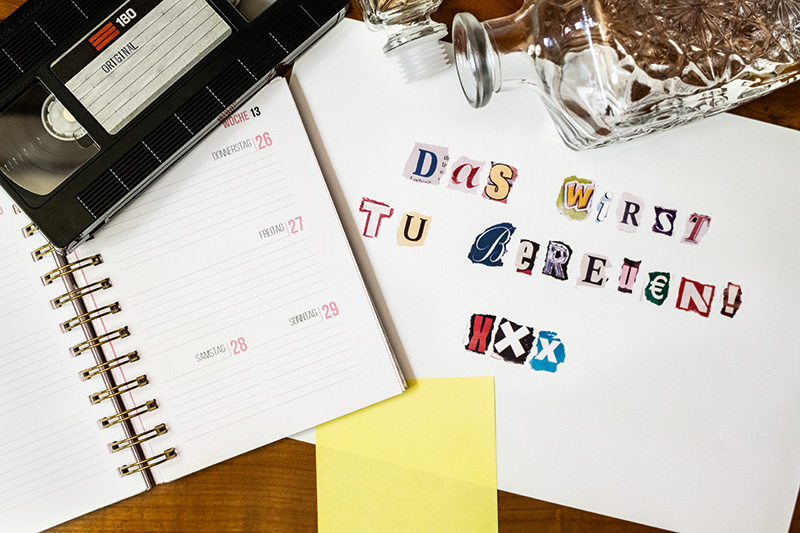 180
ORIGINAL
WOCHE 13
DONNERSTAG 26
FREITAG 27
SONNTAG 29
SAMSTAG 28
DaS WiRST
TU BeREU€N!
XXX